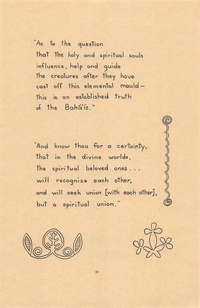 "As to the question
that the holy and spiritual souls
influence, help and guide
the creatures after they have
cast off this elemental mould—
this is an established truth
of the Bahá'ís."
"And know thou for a certainty,
that in the divine worlds,
the spiritual beloved ones...
will recognize each other,
and will seek union [with each other],
but a spiritual union."